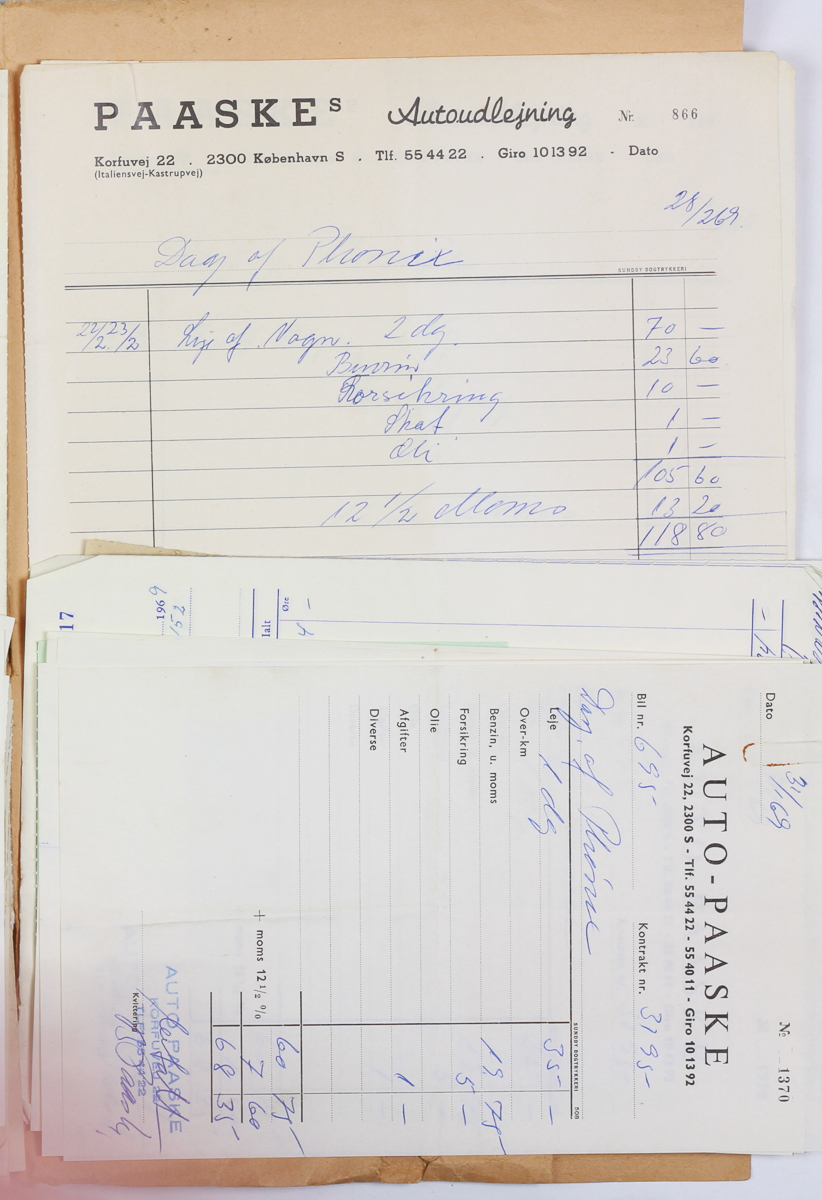 PAASKEs Autoudlejning Nr. 866
Korfuvej 22 . 2300 København S . Tlf. 55 44 22 . Giro 10 13 92 - Dato
(Italiensvej-Kastrupvej)
28/2 69.
Dag of Phonix
SUNDBY BOGTRYKKERI
22/2. 23/2 Leje af Vogn. 2 dg. 70 —
Benzin 23 60
Forsikring 10 —
Skat 1 —
Oli 1 —
105 60
12 1/2 Moms 13 20
118 80
17
1969
Ialt
Øre
Dato 31/1 69 № 1370
AUTO-PAASKE
Korfuvej 22, 2300 S - Tlf. 55 44 22 - 55 40 11 - Giro 10 13 92
Bil nr. 695 Kontrakt nr. 3195
Dag. of Phönix
SUNDBY BOGTRYKKERI
Leje 1 dg 35 —
Over-km
Benzin, u. moms 19 75
Forsikring 5 —
Olie
Afgifter 1 —
Diverse
60 75
+ moms 12 1/2 % 7 60
68 35
AUTO-PAASKE
KORFUVEJ 22
TLF. 55 44 22
Kvittering